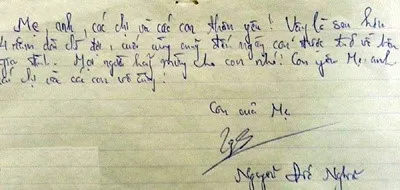 Mẹ, anh, các chị và các con thân yêu! Vậy là sau hơn
4 năm dài chờ đợi, cuối cùng cũng đến ngày con được trở về bên
gia đình. Mọi người hãy mừng cho con nhé! Con yêu Mẹ, anh
các chị và các con vô cùng!
Con của Mẹ
Nguyễn